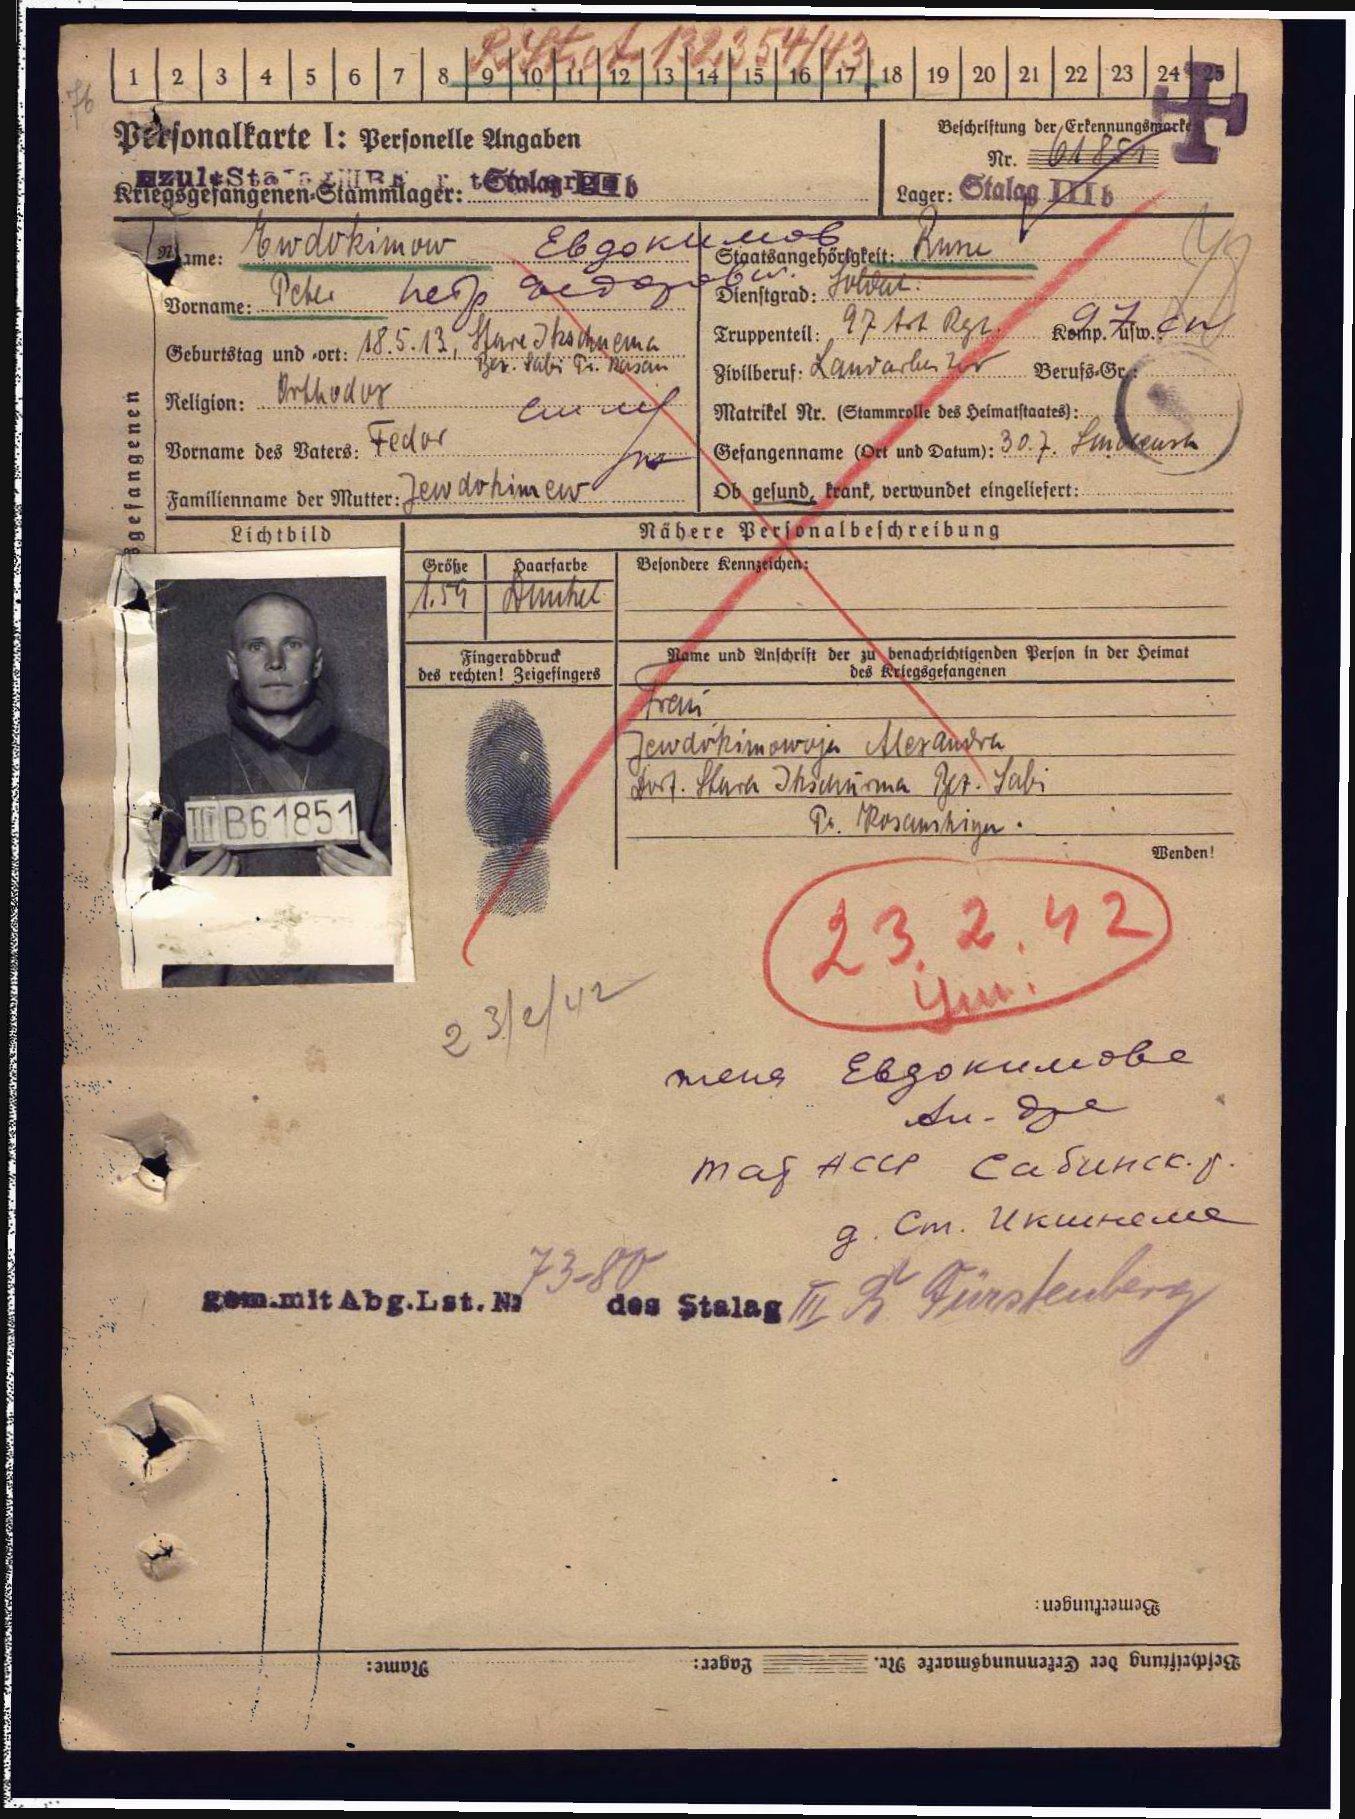 R. St. at 132354/43
1 2 3 4 5 6 7 8 9 10 11 12 13 14 15 16 17 18 19 20 21 22 23 24 25
76
Personalkarte I: Personelle Angaben
Beschriftung der Erkennungsmarke
Nr. 61851
Kriegsgefangenen-Stammlager: Stalag III b
Lager: Stalag III b
Name: Ewdokimow Евдокимов
Staatsangehörigkeit: Russe
Vorname: Peter Петр Федоров
Dienstgrad: Soldat.
Truppenteil: 97 Art Rgt. Komp. usw.:
Geburtstag und -ort: 18.5.13, Stare Ikschuema
Bez. Sabi Pr. Kasan
Zivilberuf: Landarbeiter Berufs-Gr.:
Religion: Orthodox
Matrikel Nr. (Stammrolle des Heimatstaates):
Vorname des Vaters: Fedor
Gefangenname (Ort und Datum): 30.7. Smolensk
Familienname der Mutter: Jewdokimew
Ob gesund, krank, verwundet eingeliefert:
gefangenen
Lichtbild
Nähere Personalbeschreibung
Größe Haarfarbe Besondere Kennzeichen:
1.59 Dunkel
Fingerabdruck
des rechten! Zeigefingers
Name und Anschrift der zu benachrichtigenden Person in der Heimat
des Kriegsgefangenen
Frau
Jewdokimowoja Alexandra
Dorf. Stara Ikschurma Bez. Sabi
Pr. Kosanskija.
III B61851
Wenden!
23.2.42
23/2/42
жена Евдокимова
Ал-дра
Тат АССР Сабинск. р.
д. Ст. Икшнеме
gem.mit Abg.Lst.No 73-80 des Stalag III B Fürstenberg
Bemerkungen:
Beschriftung der Erkennungsmarke Nr. Lager: Name: